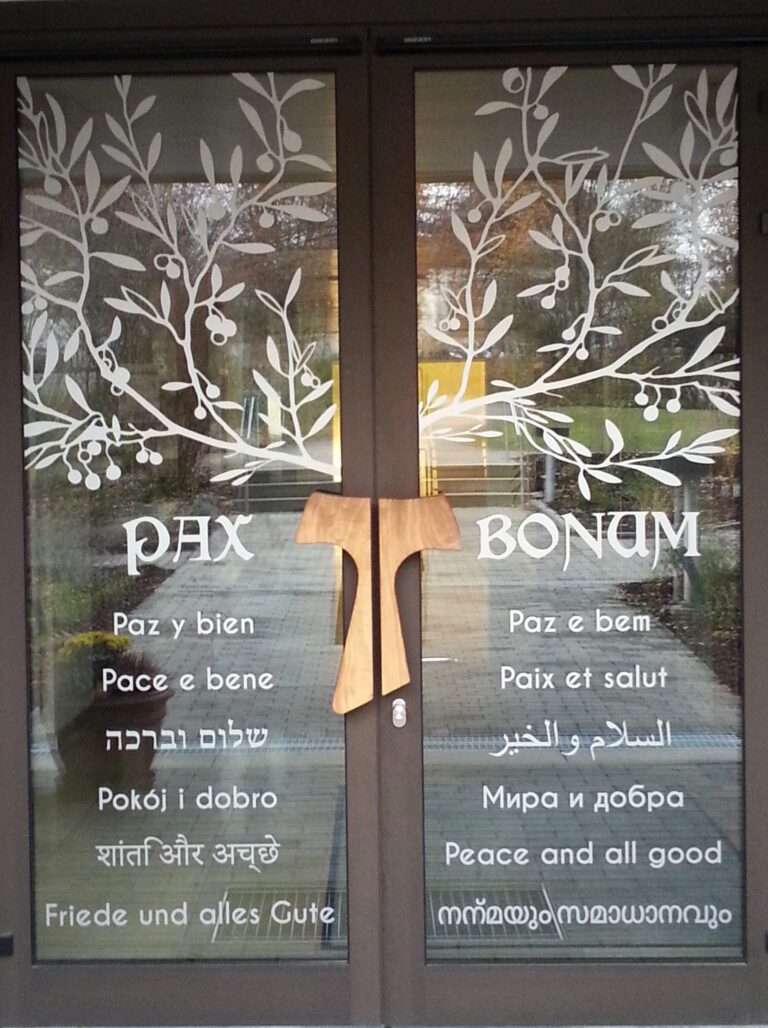 PAX
Paz y bien
Pace e bene
שלום וברכה
Pokój i dobro
शांति और अच्छे
Friede und alles Gute
BONUM
Paz e bem
Paix et salut
السلام والخير
Мира и добра
Peace and all good
നന്മയും സമാധാനവും